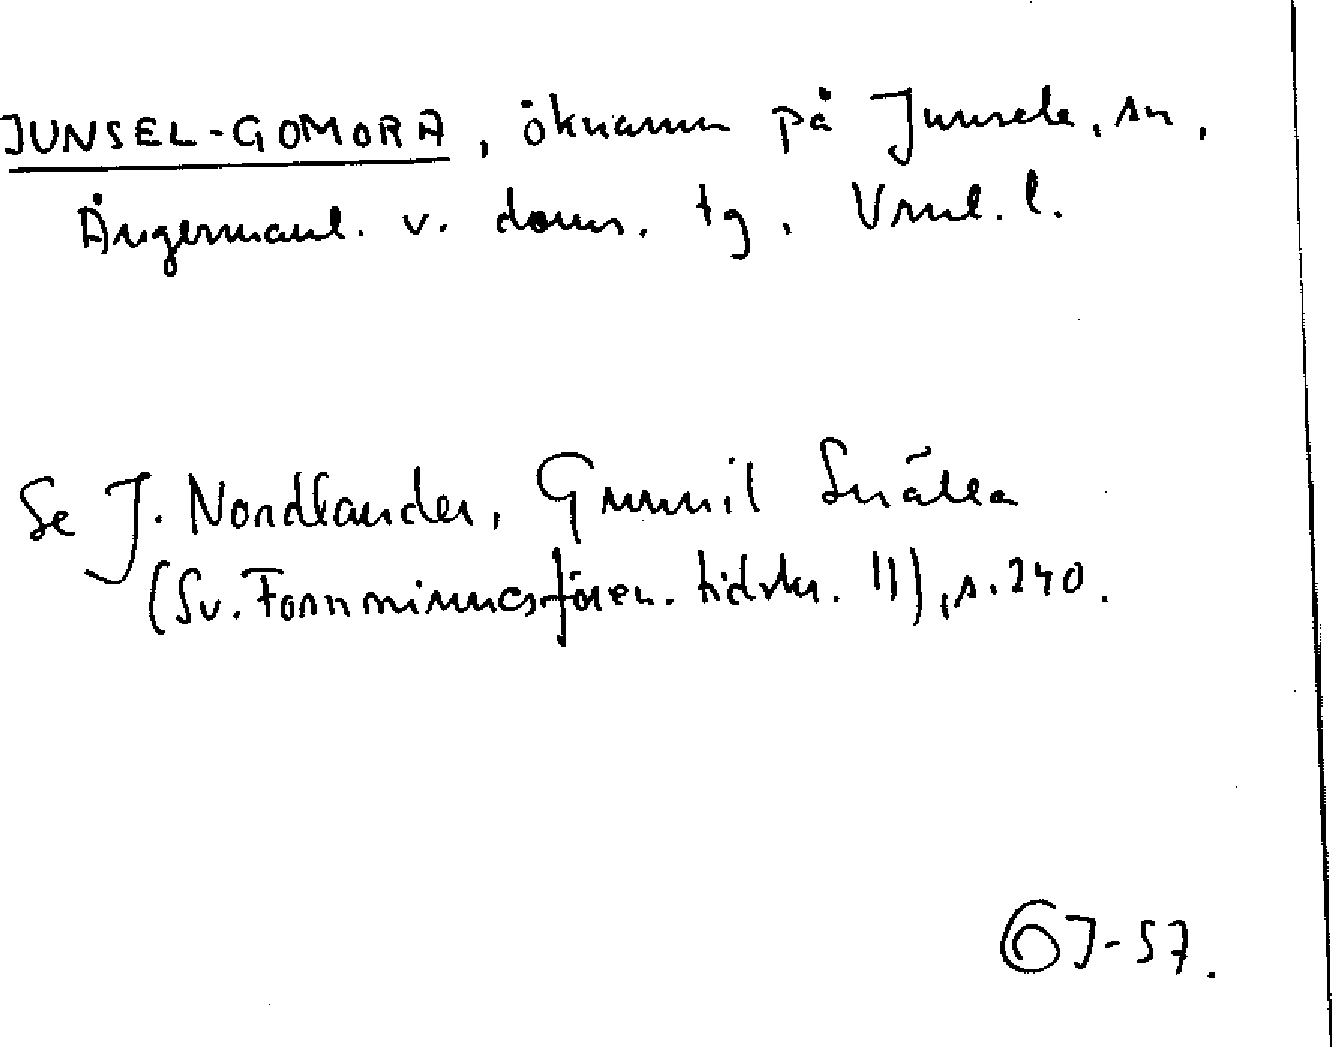 JUNSEL-GOMORA, öknamn på Junsele, sn,
Ångermanl. v. doms. tg, Vrnl. l.
Se J. Nordlander, Gunnil Snälla
(Sv. Fornminnesfören. tidskr. 11), s. 240.
GJ-57.